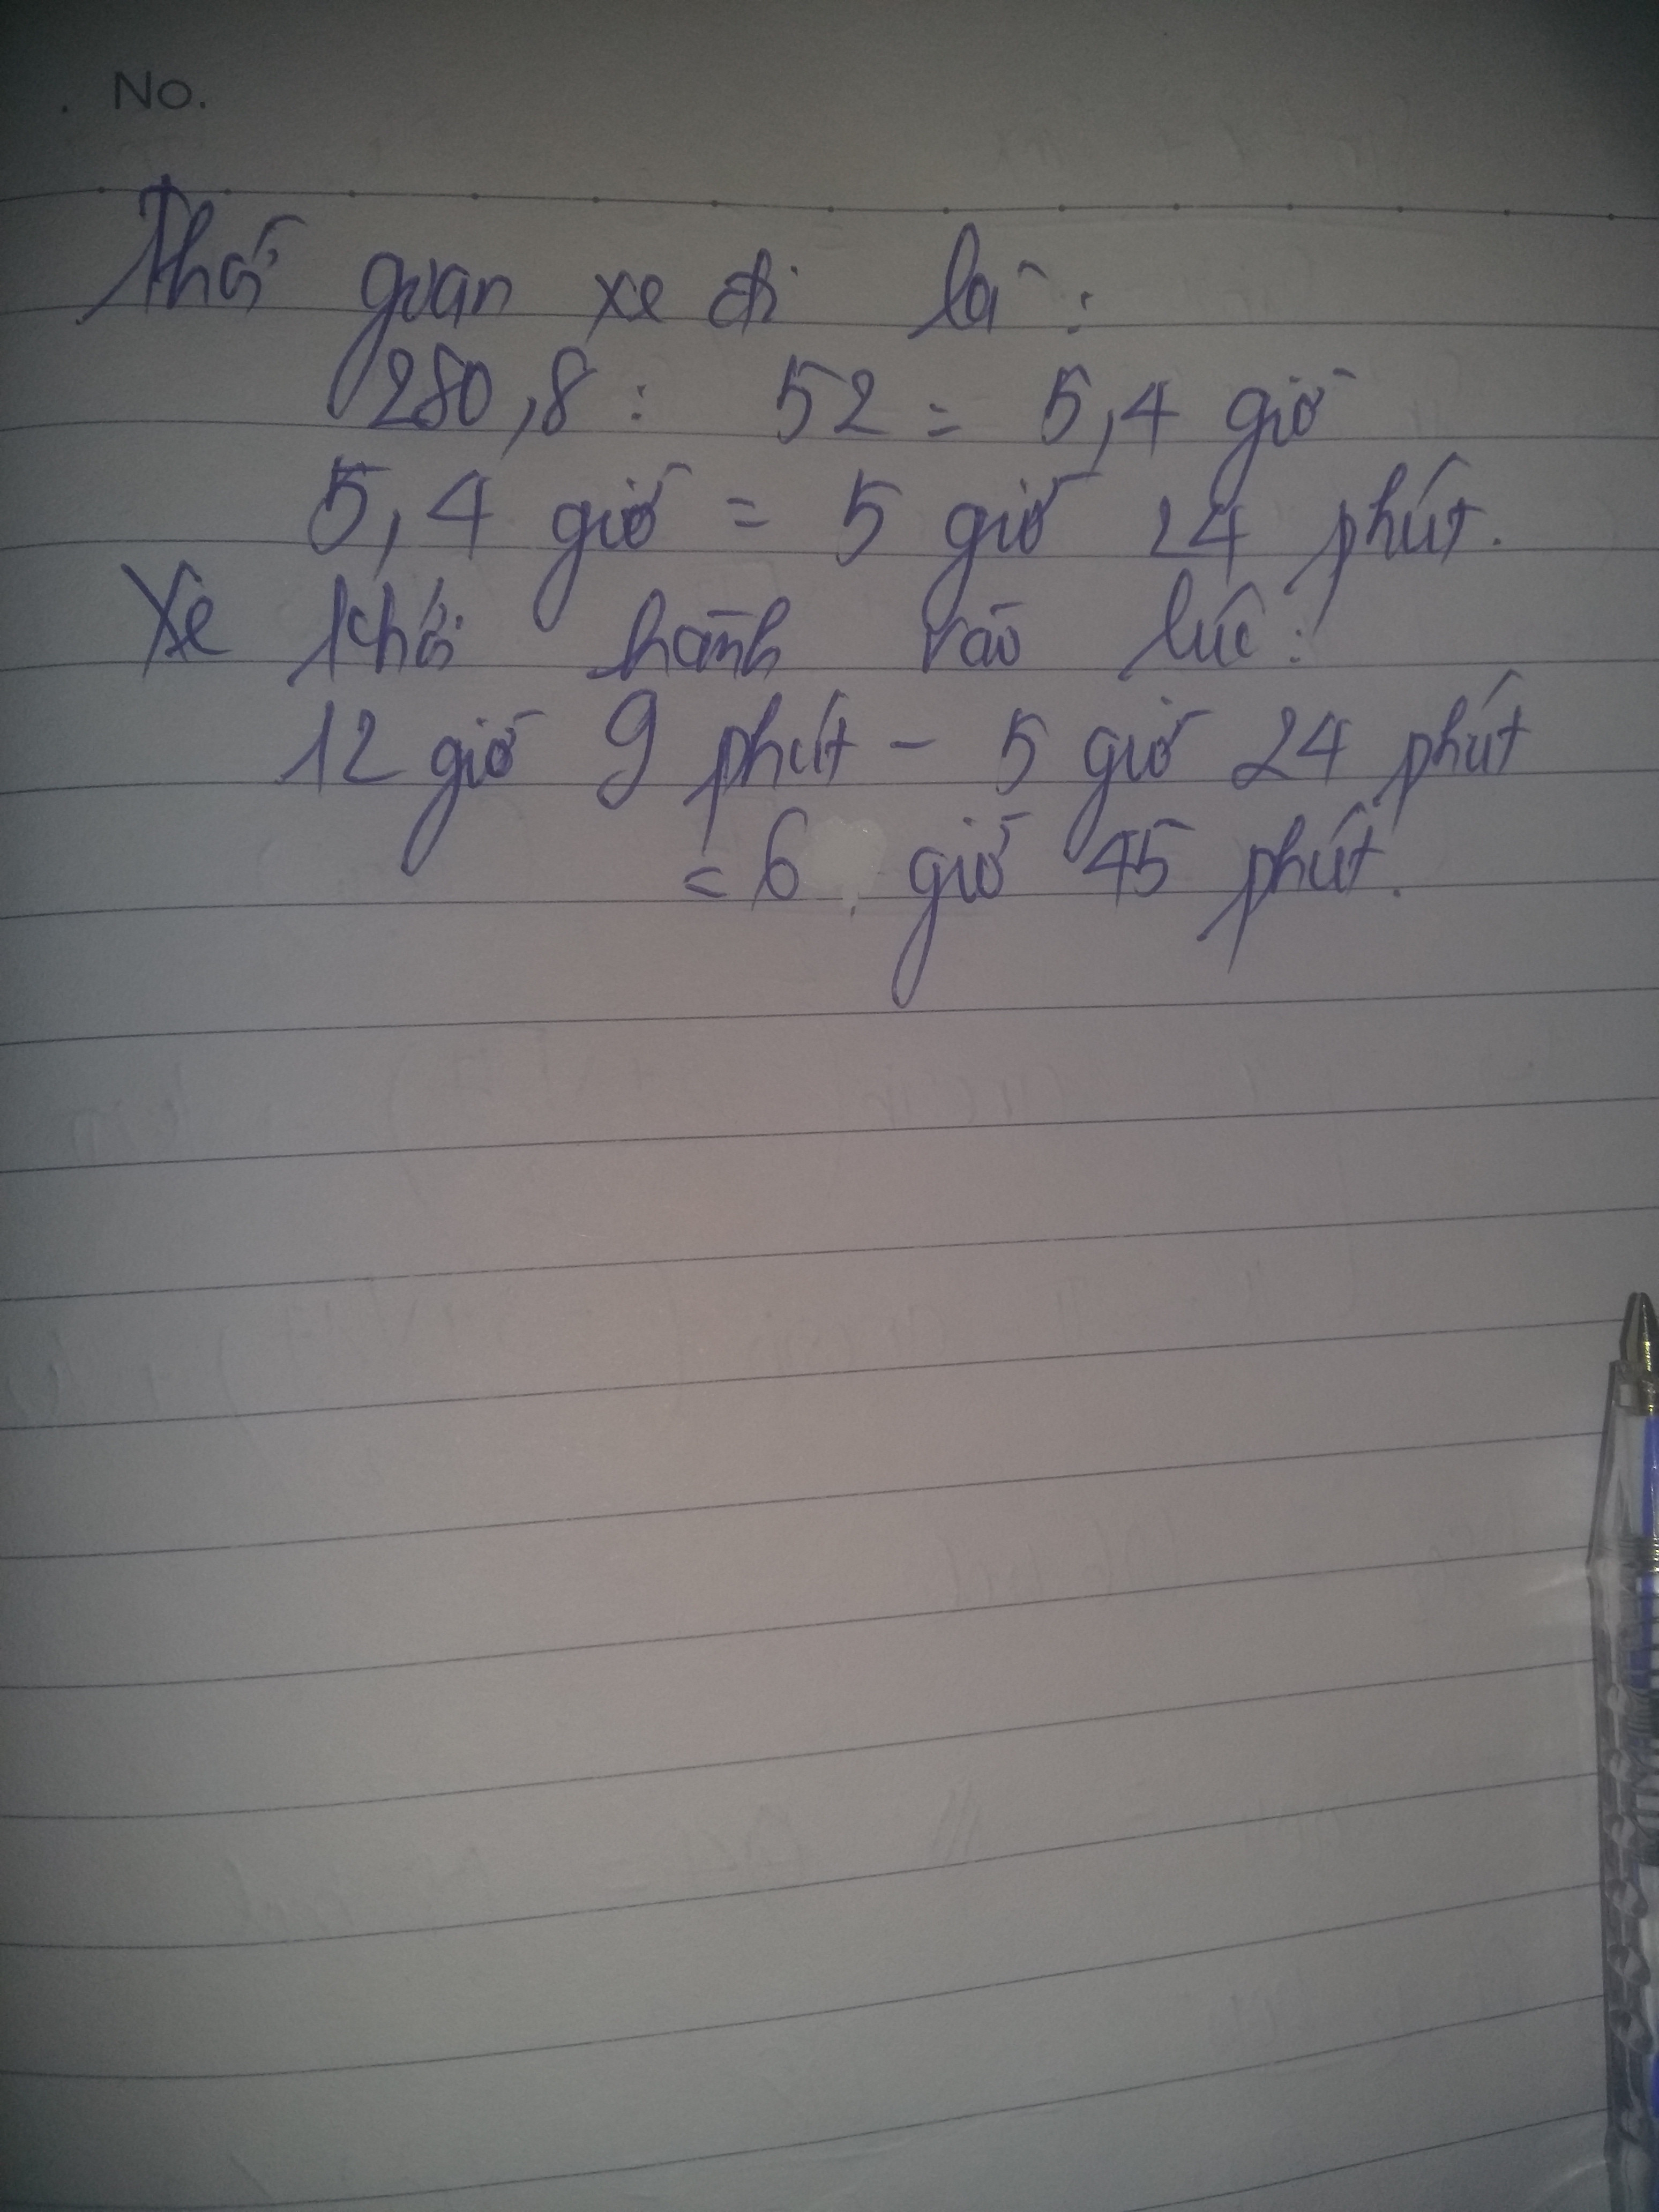 No.
Thời gian xe đi là:
280,8 : 52 = 5,4 giờ
5,4 giờ = 5 giờ 24 phút.
Xe khởi hành vào lúc:
12 giờ 9 phút - 5 giờ 24 phút
= 6 giờ 45 phút.